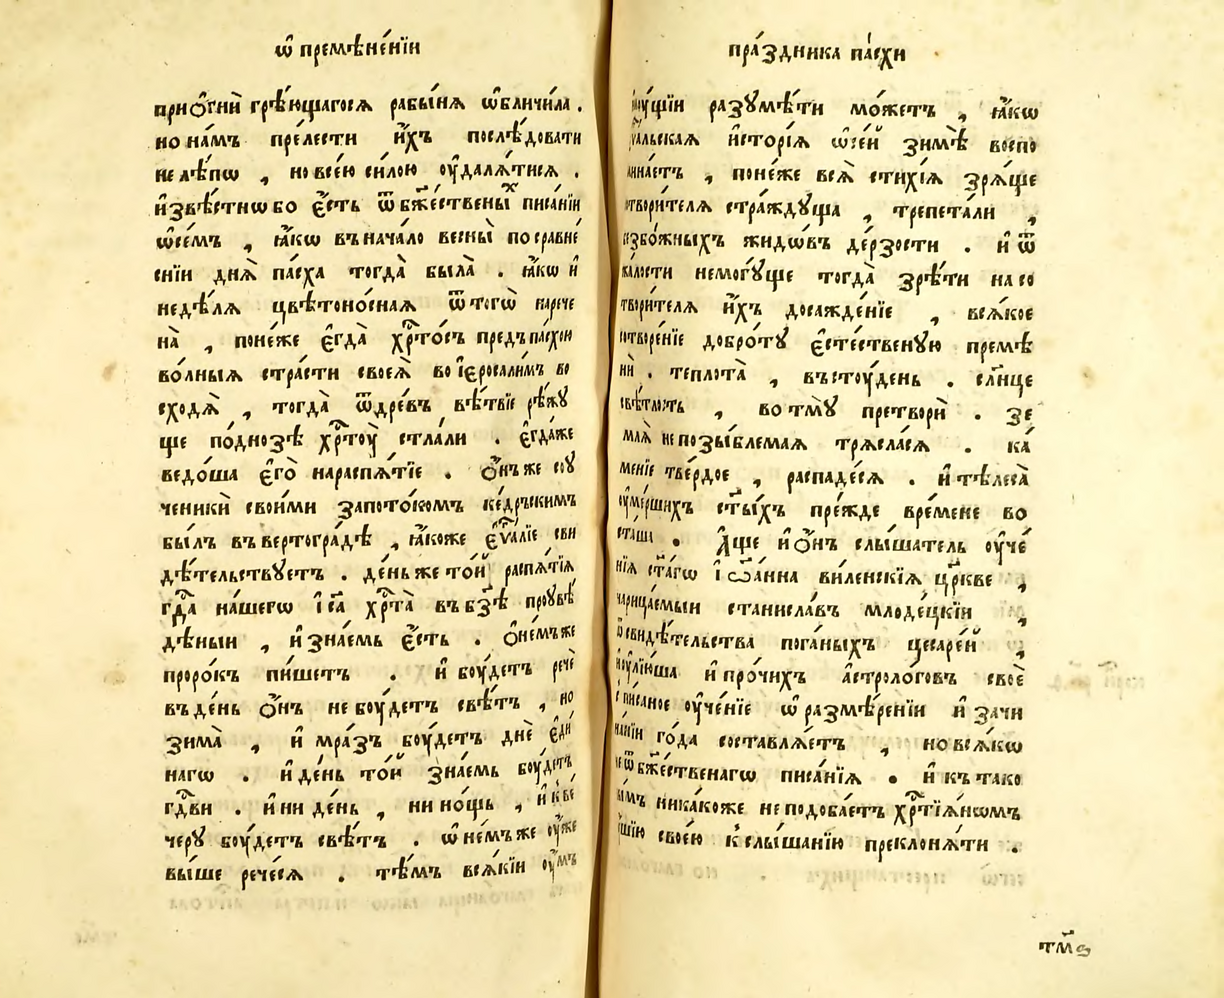 ѡ҆ премѣне́нїи
приѻгнѝ грѣ́ющагосѧ рабы́нѧ ѡ҆бличи́ла .
но на́мъ пре́лести и҆́хъ послѣ́довати
не лѣ́пѡ , но все́ю си́лою оу҆далѧ́тисѧ .
и҆звѣ́стнѡ бо є҆́сть ѿ бж҃е́ствены́ⷯ писа́нїи
ѡ҆ се́мъ , ꙗ҆́кѡ въ нача́ло весны̀ по сравне́
енїи днѧ̀ па́сха тогда̀ была̀ . ꙗ҆́кѡ и҆
недѣ́лѧ цвѣтоно́снаѧ ѿ тогѡ̀ нарече
на̀ , поне́же є҆гда̀ хрⷭ҇то́съ предъ па́схою
во́лныѧ стра́сти своеѧ̀ во і҆єросали́мъ во
сходѧ̀ , тогда̀ ѿ дре́въ вѣ́твїе рѣ́жꙋ
ще по́днозѣ хрⷭ҇тоу̀ стла́ли . є҆гда́же
ведо́ша є҆го̀ на распѧ́тїе . ѻ҆́нъ же со оу
ченикѝ свои́ми за пото́комъ ке́дрьскимъ
бы́лъ въ вертогра́дѣ , ꙗ҆́коже є҆ѵⷢ҇а́лїе сви
дѣ́тельствꙋетъ . де́нь же то́й распѧ́тїѧ
гдⷭ҇а на́шегѡ і҆с҃а хрⷭ҇та̀ въ бз҃ѣ проувѣ́
дѣныи , и҆ зна́емь є҆́сть . ѻ҆ не́мъ же
проро́къ пи́шетъ . и҆ боу́детъ речѐ
въ де́нь ѻ҆́нъ не боу́детъ свѣ́тъ , но
зима̀ , и҆ мра́зъ боу́детъ днѐ є҆ди́
нагѡ . и҆ де́нь то́й зна́емь боу́детъ
гдⷭ҇ви . и҆ ни де́нь , ни но́щь , и҆ к ве́
черꙋ боу́детъ свѣ́тъ . ѡ҆ не́мъ же оу҆́же
вы́ше рече́сѧ . тѣ́мъ всѧ́кїи оу҆́мъ
пра́здника па́схи
разꙋмѣ́ти мо́жетъ , ꙗ҆́кѡ
и҆сторі́ѧ ѡ҆ се́й зимѣ̀ воспо
мина́етъ , поне́же всѧ̀ стихі́ѧ зрѧ́ще
твори́телѧ стра́ждꙋща , трепета́ли ,
безбо́жныхъ жидѡ́въ де́рзости . и҆ ѿ
жа́лости немогꙋ́ще тогда̀ зрѣ́ти на со
твори́телѧ и҆́хъ досажде́нїе , всѧ́кое
сотворе́нїе добро́тꙋ є҆сте́ственꙋю премѣ
нѝ . теплота̀ , въ стоу́день . сл҃нце
свѣ́тлость , во тмꙋ̀ претворѝ . зе
млѧ̀ непозы́блемаѧ трѧсла́сѧ . ка́
менїе тве́рдое , распаде́сѧ . и҆ тѣлеса̀
оу҆ме́ршихъ ст҃ы́хъ пре́жде вре́мене во
ста́ша . А҆́ще и҆ ѻ҆́нъ слы́шатель оу҆че́
нїѧ ст҃а́гѡ і҆ѡа́нна ви́ленскїѧ цр҃кве ,
нарица́емыи станисла́въ младе́цкїи ,
ѿ свидѣ́тельства пога́ныхъ цесаре́й ,
и҆оулі́юша и҆ про́чихъ а҆стрологовъ своѐ
списаное оу҆че́нїе ѡ҆ размѣ́ренїи и҆ зачи
на́нїи го́да составлѧ́етъ , но всѧ́кѡ
не ѿ бж҃е́ственагѡ писа́нїѧ . и҆ къ тако
вы́мъ ника́коже не подоба́етъ хрⷭ҇тїѧ́нѡмъ
оу҆шїю свое́ю к слы́шанїю преклонѧ́ти .
тм҃ѕ